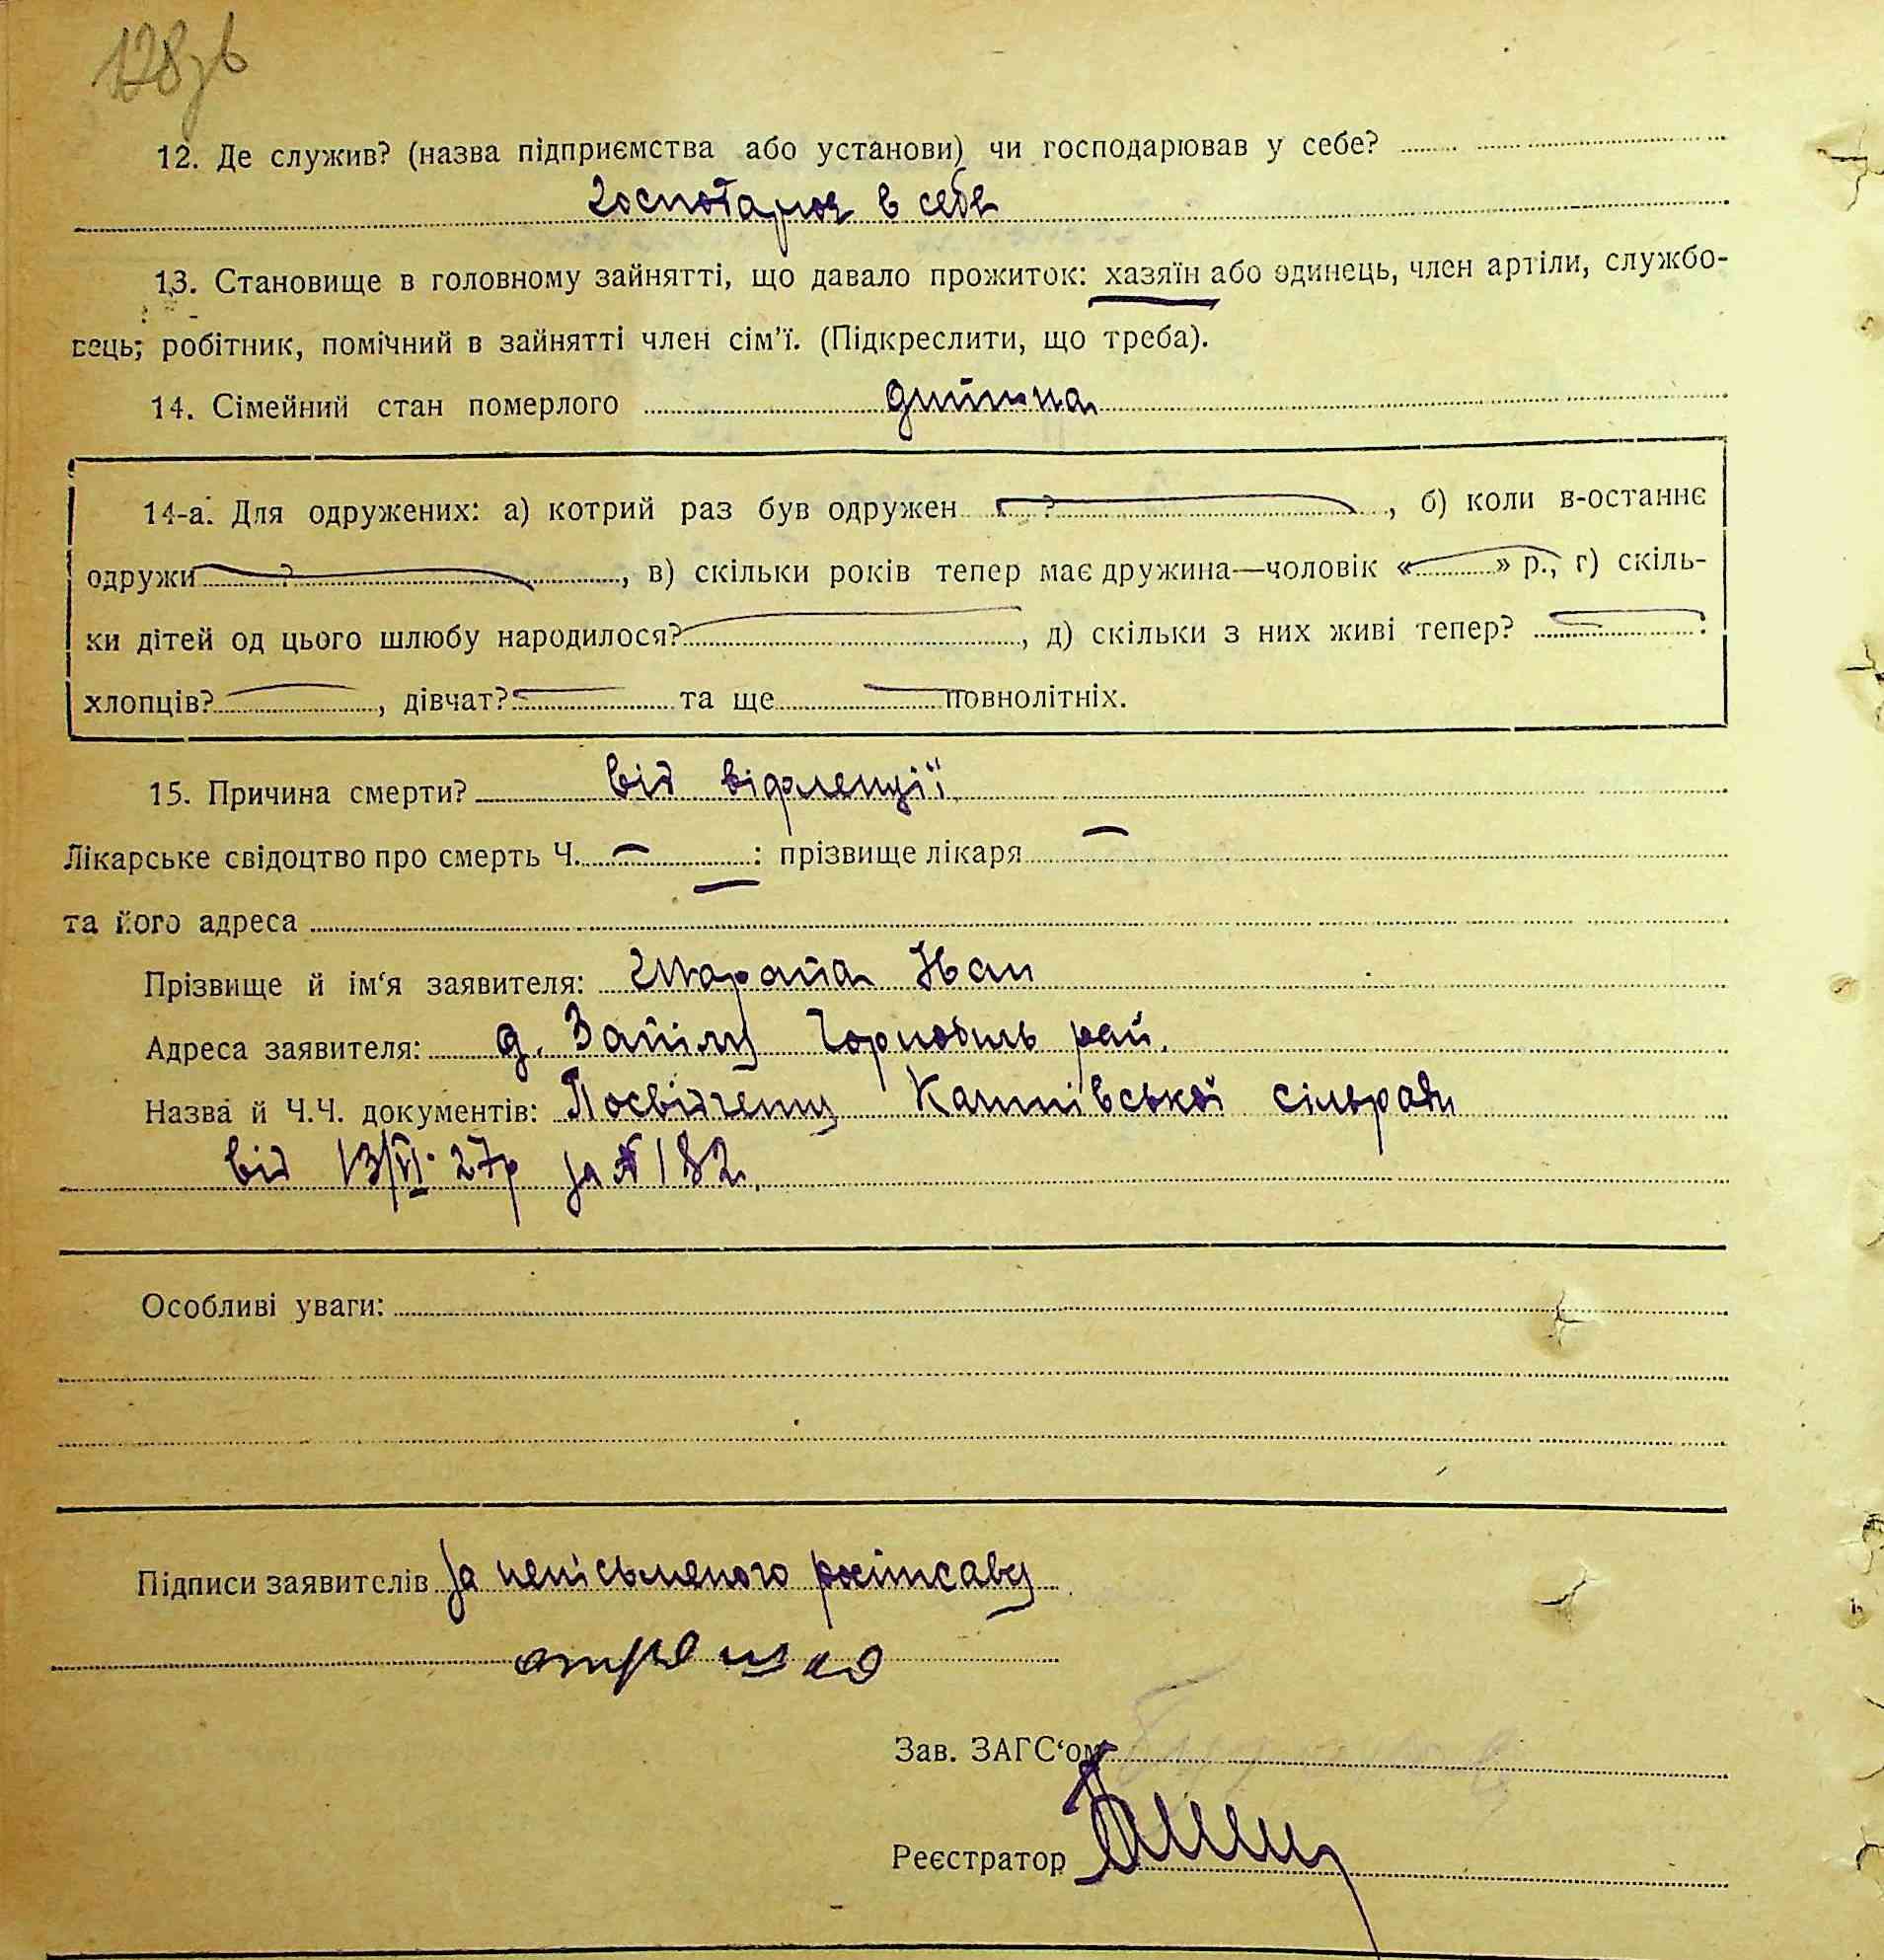 128зв
12. Де служив? (назва підприємства або установи) чи господарював у себе?
Господарює в себе
13. Становище в головному зайнятті, що давало прожиток: хазяїн або одинець, член артіли, службо-
вець; робітник, помічний в зайнятті член сім'ї. (Підкреслити, що треба).
14. Сімейний стан померлого дитина
14-а. Для одружених: а) котрий раз був одружен ?, б) коли в-останнє
одружи ?, в) скільки років тепер має дружина—чоловік « » р., г) скіль-
ки дітей од цього шлюбу народилося? , д) скільки з них живі тепер? :
хлопців? , дівчат? та ще повнолітніх.
15. Причина смерти? від віфленції
Лікарське свідоцтво про смерть Ч. — : прізвище лікаря —
та його адреса
Прізвище й ім'я заявителя: Іван
Адреса заявителя: Чорнобиль рай.
Назва й Ч.Ч. документів: Посвідчену сільради
від 13/VI 27р за № 182.
Особливі уваги:
Підписи заявителів За неписьменого
Зав. ЗАГС'ом
Реєстратор